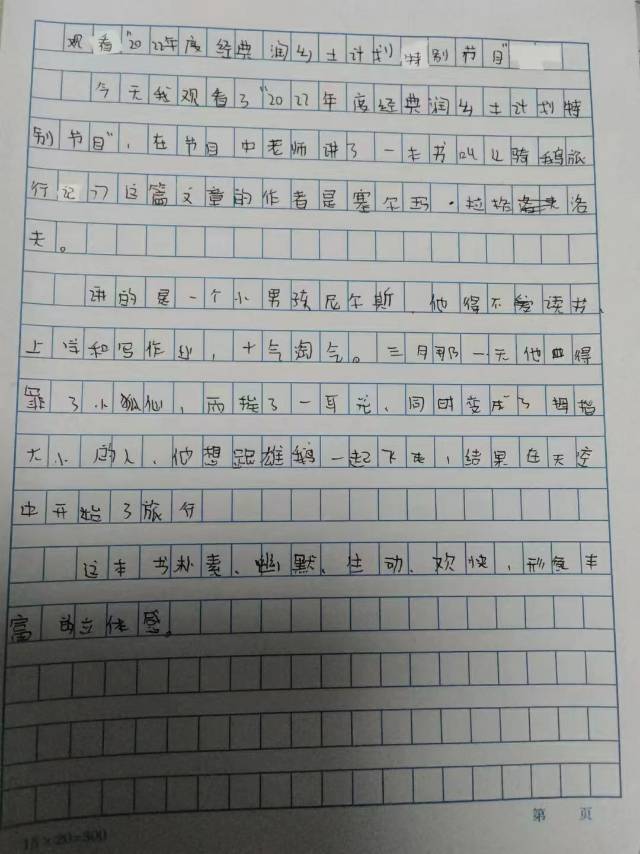 观看"2022年度经典润乡土计划特别节目"
今天我观看了"2022年度经典润乡土计划特
别节目",在节目中老师讲了一本书叫《骑鹅旅
行记》这篇文章的作者是塞尔玛·拉格洛
夫。
讲的是一个小男孩尼尔斯,他得不爱读书、
上学和写作业,十气淘气。三月那一天他得
罪了小狐仙,而挨了一耳光,同时变成了拇指
大小的人,他想跟雄鹅一起下走,结果在天空
中开始了旅行
这本书朴素、幽默、生动、欢快,形象丰
富的立体感。
第 页
15×20=300